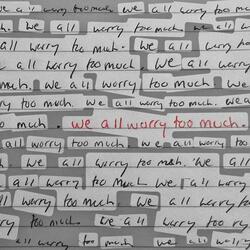 we all worry too much. we all
too much. we all worry too much
we all worry too much. we all
all worry too much. we all
much. we all worry too much we
worry too much. we all worry too much. we
too much. we all worry too much.
we all worry too much. we all
we all worry too much. we all
all worry too much. we all worry
too much. we all worry too much
worry too much. we all worry too
all worry too much we all